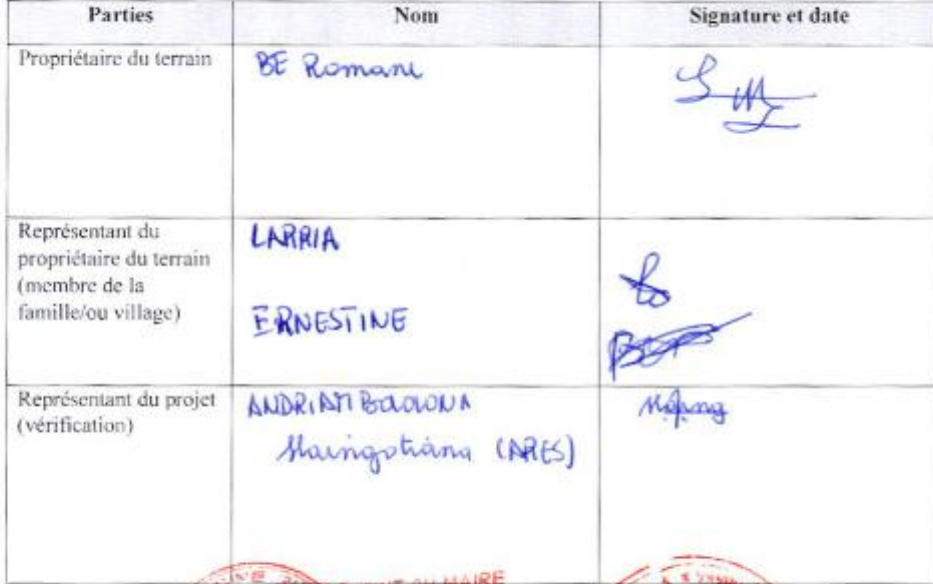 Parties Nom Signature et date
Propriétaire du terrain BE Romane
Représentant du
propriétaire du terrain
(membre de la
famille/ou village)
LARRIA
ERNESTINE
Représentant du projet
(vérification)
(ARES)
MAIRE